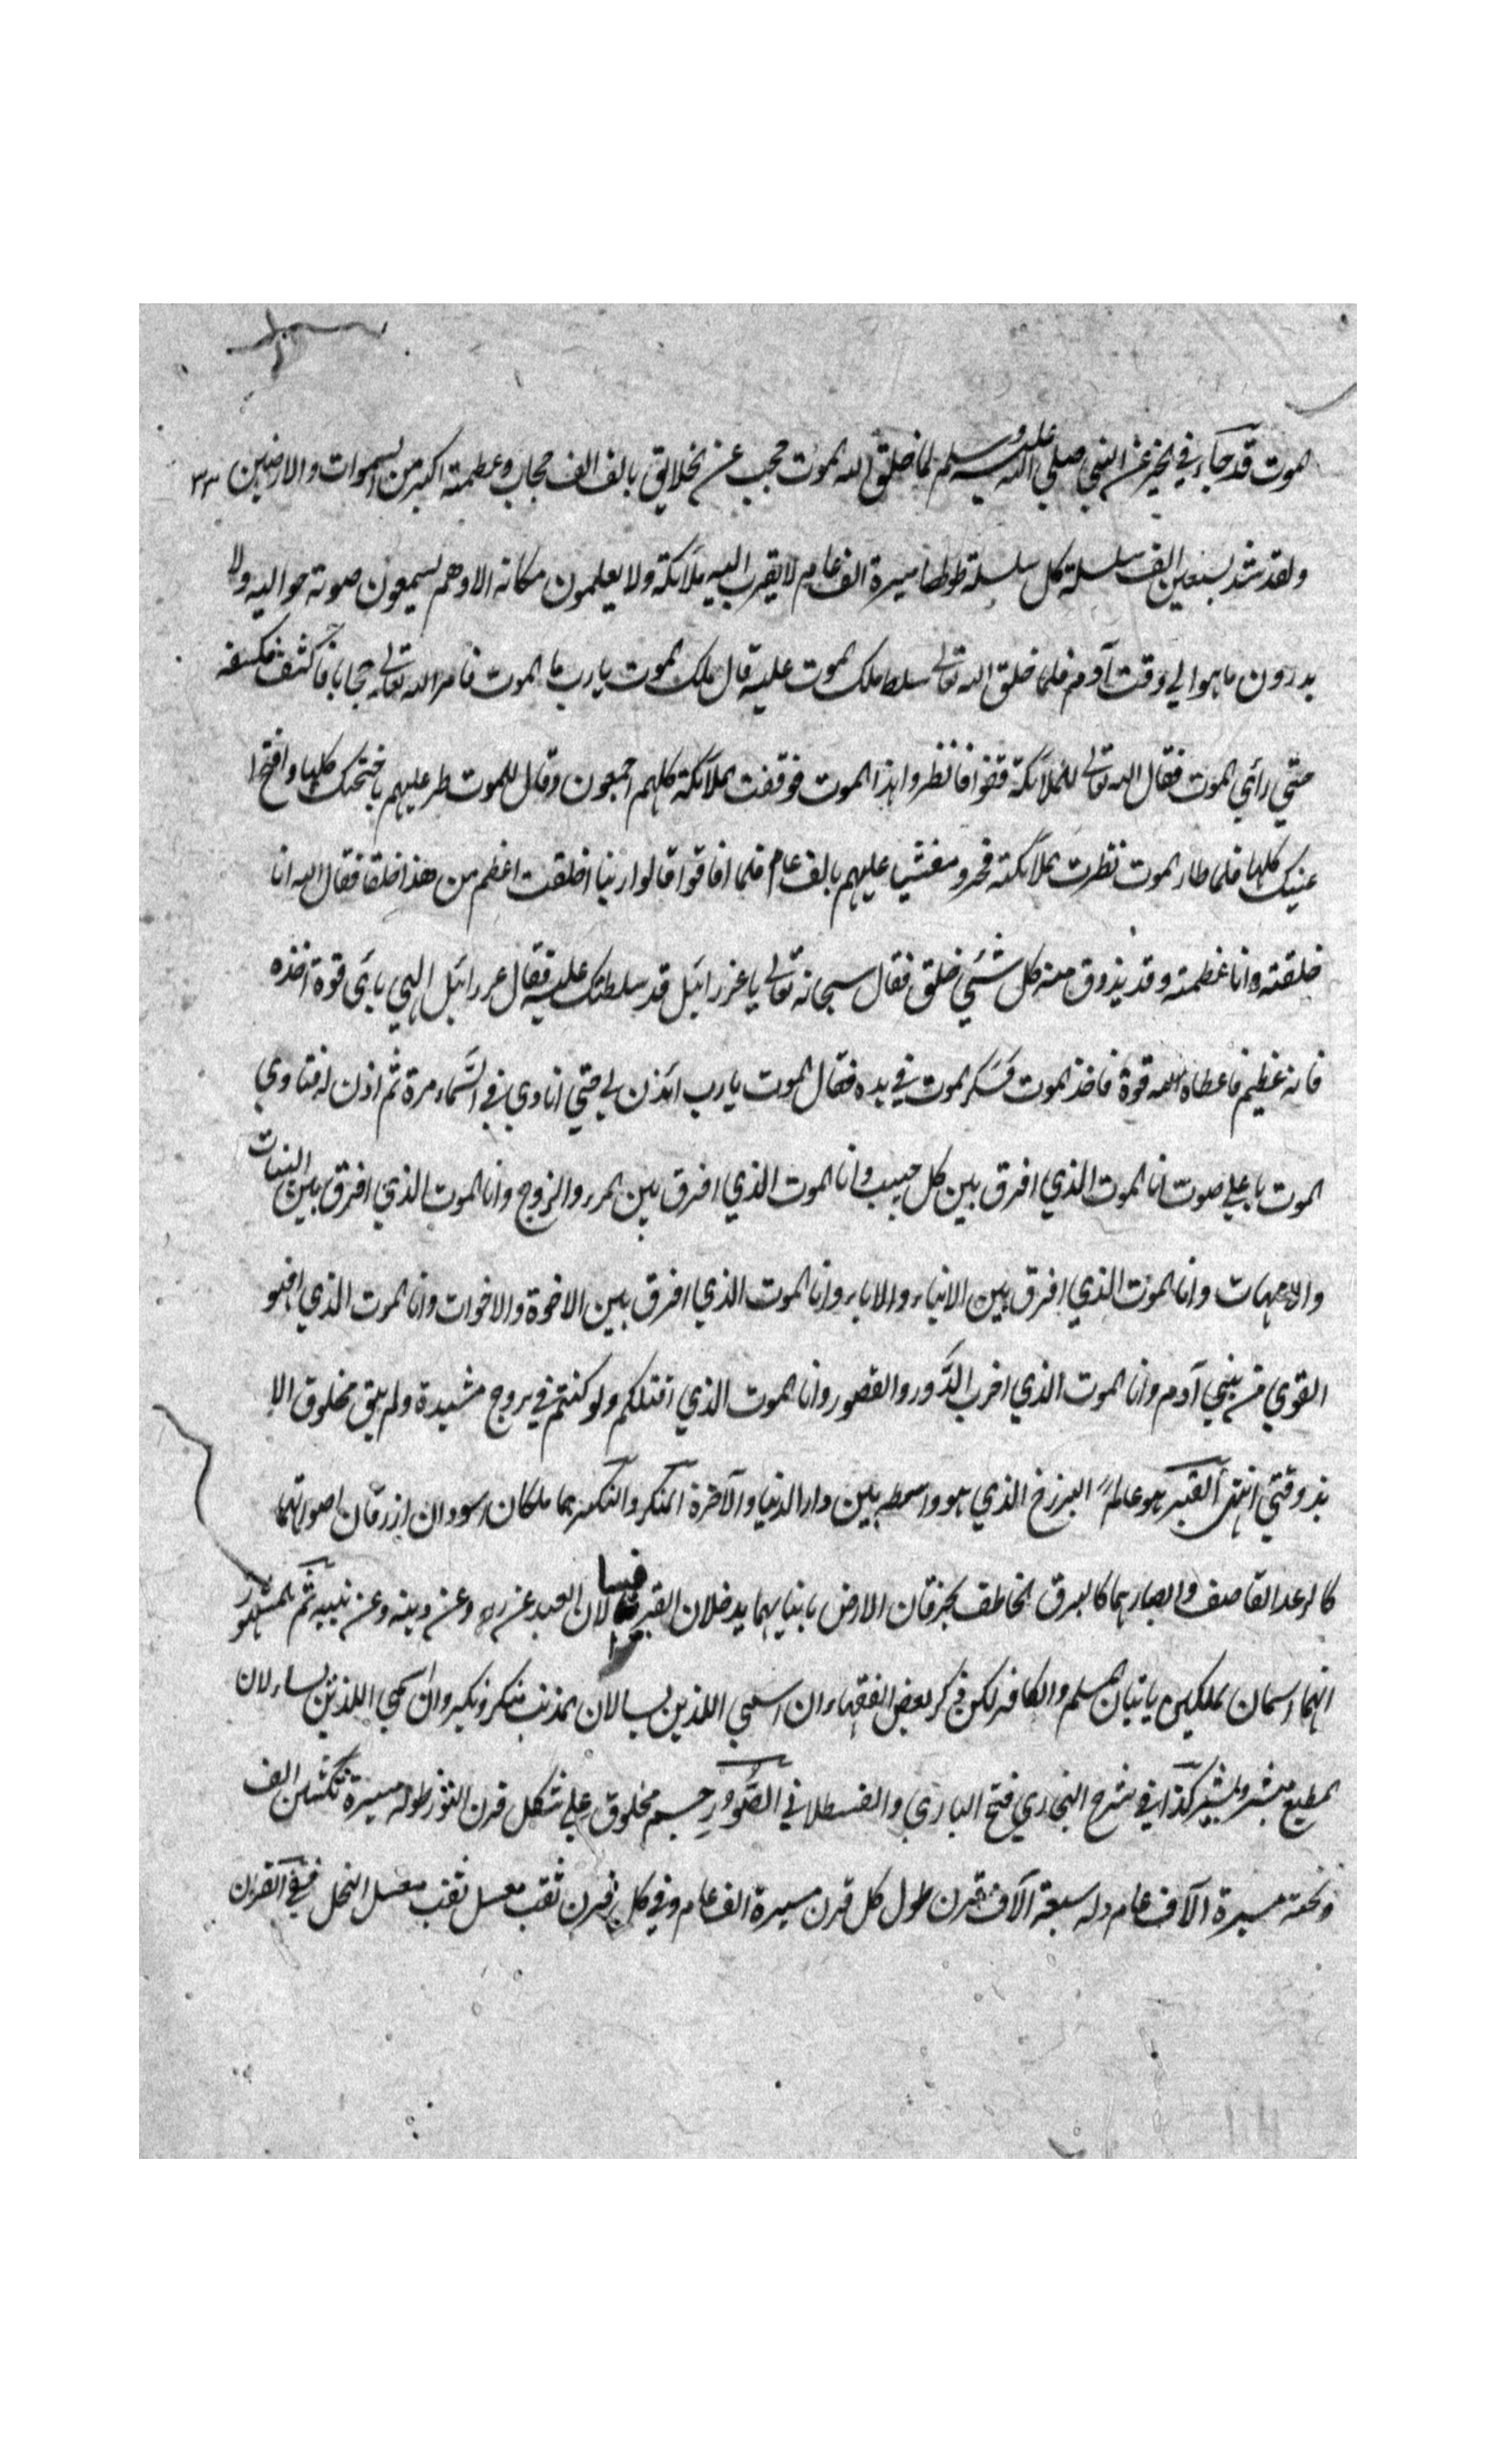 الموت قد جاء في الخبر عن النبي صلي الله عليه وسلم لما خلق الله الموت حجب عن الخلايق بالف الف حجاب وعظمته اكبر من السموات والارضين ٣٣
ولقد شد بسبعين الف سلسلة كل سلسلة طولها مسيرة الف عام لا يقرب اليه ملائكة ولا يعلمون مكانه الا وهم يسمعون صوته حواليه ولا
يدرون ما هو الي وقت آدم فلما خلق الله تعالى سلط ملك الموت عليه قال ملك الموت يا رب ما الموت فامر الله تعالى حجابا فانكشف
حتي رأي الموت فقال الله تعالى للملائكة قفوا فانظروا هذا الموت فوقفت الملائكة كلهم اجمعون وقال للموت طر عليهم باجنحتك كلها وافتح ا
عينيك كلها فلما طار الموت نظرت الملائكة فخروا مغشيا عليهم بالف عام فلما افاقوا قالوا ربنا اخلقت اعظم من هذا خلقا فقال الله انا
خلقته وانا عظمته وقد يذوق منه كل شئي خلق فقال سبحانه تعالى يا عزرائيل قد سلطتك عليه فقال عزرائيل الهي باي قوة اخذه
فانه عظيم فاعطاه الله قوة فاخذ الموت فسكر الموت في يده فقال الموت يا رب ائذن لي حتي انادي في السماء مرة ثم اذن له فنادي
الموت باعلي صوت انا الموت الذي افرق بين كل حبيب وانا الموت الذي افرق بين المرء والزوج وانا الموت الذي افرق بين البنات
والامهات وانا الموت الذي افرق بين الابناء والاباء وانا الموت الذي افرق بين الاخوة والاخوات وانا الموت الذي
القوي من بني آدم وانا الموت الذي اخرب الدور والقصور وانا الموت الذي اقتلكم ولو كنتم في بروج مشيدة ولم يبق مخلوق الا
يذوقني انتهى القبر هو عالم البرزخ الذي هو واسطه بين دار الدنيا والآخرة المنكر والنكير هما ملكان اسودان ازرقان اصواتهما
كالرعد القاصف وابصارهما كالبرق الخاطف يخرقان الارض بانيابهما يدخلان القبر فيسالان العبد عن ربه وعن دينه وعن نبيه ثم المشهور
انهما اسمان لملكين ياتيان المسلم والكافر لكن ذكر بعض الفقهاء ان اسمي اللذين يسالان المذنب منكر ونكير وان اسمي اللذين يساءلان
المطيع مبشر وبشير كذا في شرح البخاري فتح الباري والقسطلاني الصور جسم مخلوق علي شكل قرن الثور طوله مسيرة ثلثين الف
مسيرة الآف عام وله سبعة الآف قرن طول كل قرن مسيرة الف عام وفي كل قرن ثقب معسل ثقب معسل النحل ففي القرن